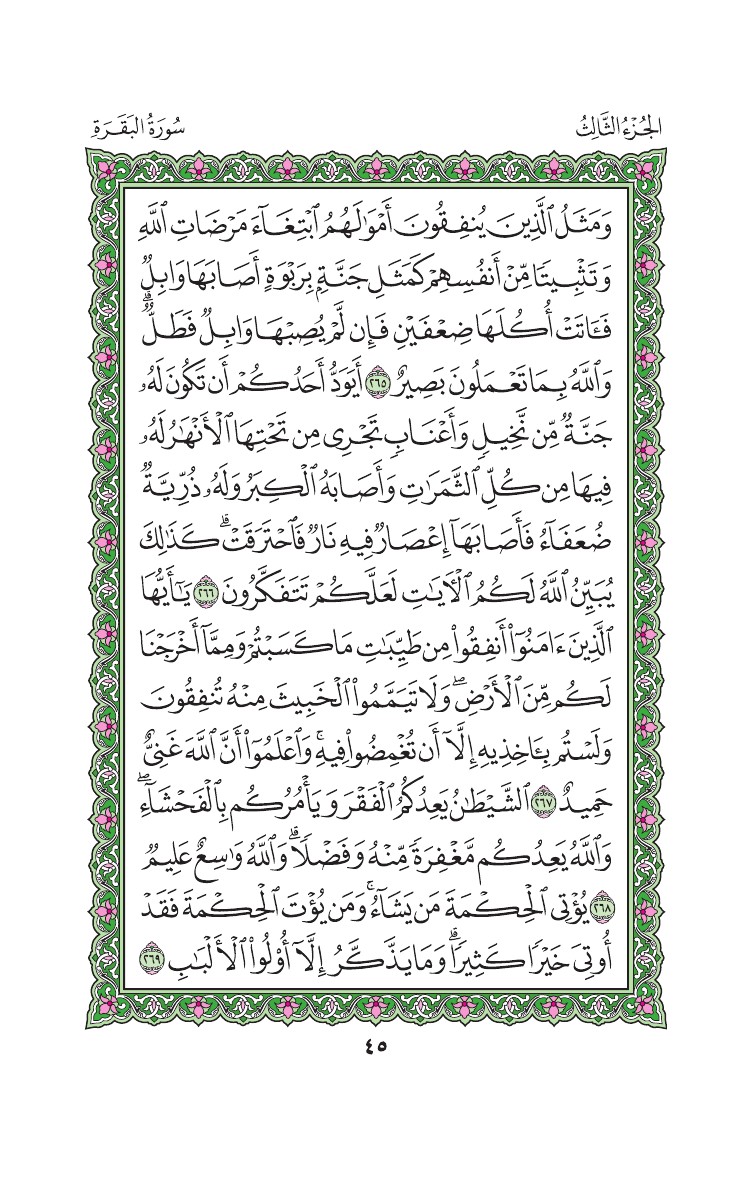 الجُزْءُ الثَّالِثُ
سُورَةُ البَقَرَةِ
وَمَثَلُ ٱلَّذِينَ يُنفِقُونَ أَمْوَٰلَهُمُ ٱبْتِغَآءَ مَرْضَاتِ ٱللَّهِ
وَتَثْبِيتًا مِّنْ أَنفُسِهِمْ كَمَثَلِ جَنَّةٍۭ بِرَبْوَةٍ أَصَابَهَا وَابِلٌ
فَـَٔاتَتْ أُكُلَهَا ضِعْفَيْنِ فَإِن لَّمْ يُصِبْهَا وَابِلٌ فَطَلٌّ ۗ
وَٱللَّهُ بِمَا تَعْمَلُونَ بَصِيرٌ ٢٦٥ أَيَوَدُّ أَحَدُكُمْ أَن تَكُونَ لَهُۥ
جَنَّةٌ مِّن نَّخِيلٍ وَأَعْنَابٍ تَجْرِى مِن تَحْتِهَا ٱلْأَنْهَٰرُ لَهُۥ
فِيهَا مِن كُلِّ ٱلثَّمَرَٰتِ وَأَصَابَهُ ٱلْكِبَرُ وَلَهُۥ ذُرِّيَّةٌ
ضُعَفَآءُ فَأَصَابَهَآ إِعْصَارٌ فِيهِ نَارٌ فَٱحْتَرَقَتْ ۗ كَذَٰلِكَ
يُبَيِّنُ ٱللَّهُ لَكُمُ ٱلْـَٔايَٰتِ لَعَلَّكُمْ تَتَفَكَّرُونَ ٢٦٦ يَٰٓأَيُّهَا
ٱلَّذِينَ ءَامَنُوٓا۟ أَنفِقُوا۟ مِن طَيِّبَٰتِ مَا كَسَبْتُمْ وَمِمَّآ أَخْرَجْنَا
لَكُم مِّنَ ٱلْأَرْضِ ۖ وَلَا تَيَمَّمُوا۟ ٱلْخَبِيثَ مِنْهُ تُنفِقُونَ
وَلَسْتُم بِـَٔاخِذِيهِ إِلَّآ أَن تُغْمِضُوا۟ فِيهِ ۚ وَٱعْلَمُوٓا۟ أَنَّ ٱللَّهَ غَنِىٌّ
حَمِيدٌ ٢٦٧ ٱلشَّيْطَٰنُ يَعِدُكُمُ ٱلْفَقْرَ وَيَأْمُرُكُم بِٱلْفَحْشَآءِ ۖ
وَٱللَّهُ يَعِدُكُم مَّغْفِرَةً مِّنْهُ وَفَضْلًا ۗ وَٱللَّهُ وَٰسِعٌ عَلِيمٌ
٢٦٨ يُؤْتِى ٱلْحِكْمَةَ مَن يَشَآءُ ۚ وَمَن يُؤْتَ ٱلْحِكْمَةَ فَقَدْ
أُوتِىَ خَيْرًا كَثِيرًا ۗ وَمَا يَذَّكَّرُ إِلَّآ أُو۟لُوا۟ ٱلْأَلْبَٰبِ ٢٦٩
٤٥